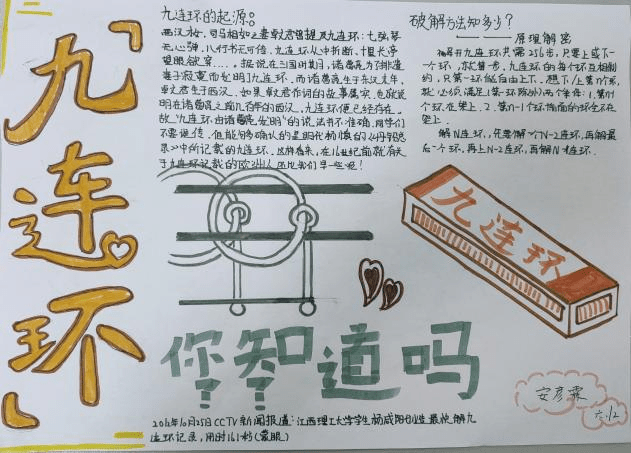 「九连环」
九连环的起源。
西汉才女，司马相如之妻卓文君曾提及九连环：七弦琴
无心弹，八行书无可传．九连环从中折断．十里长亭
望眼欲穿．．．。据说在三国时期，诸葛亮为了排遣
妻子寂寞而发明九连环．而诸葛亮生于东汉末年，
卓文君生于西汉．如果卓文君作词的故事属实，也就说
明在诸葛亮之前几百年的西汉，九连环便已经存在．
故"九连环由诸葛亮发明"的说法并不准确，同学们
不要误传．但能够确认的是明代杨慎的《丹铅总
录》中所记载的九连环．这样看来，在16世纪前就有关
于九连环记载的欧洲人还比我们早一些呢！
破解方法知多少？
——原理解密
解开九连环共需256步，只要上或下一
个环，就算一步．九连环的每个环互相制
约，只第一环能自由上下．想下/上第n个环，
就必须满足（第一环除外）两个条件：1.第n-1
个环在架上．2.第n-1个环前面的环全不在
架上．
解N连环，先要解下N-2连环，再解最
后一个环，再上N-2连环，再解N-1连环．
九连环
你知道吗
？？
安彦霖
六12
10月25日CCTV新闻报道：江西理工大学学生杨咸阳创造最快解九
连环记录，用时161秒（蒙眼）